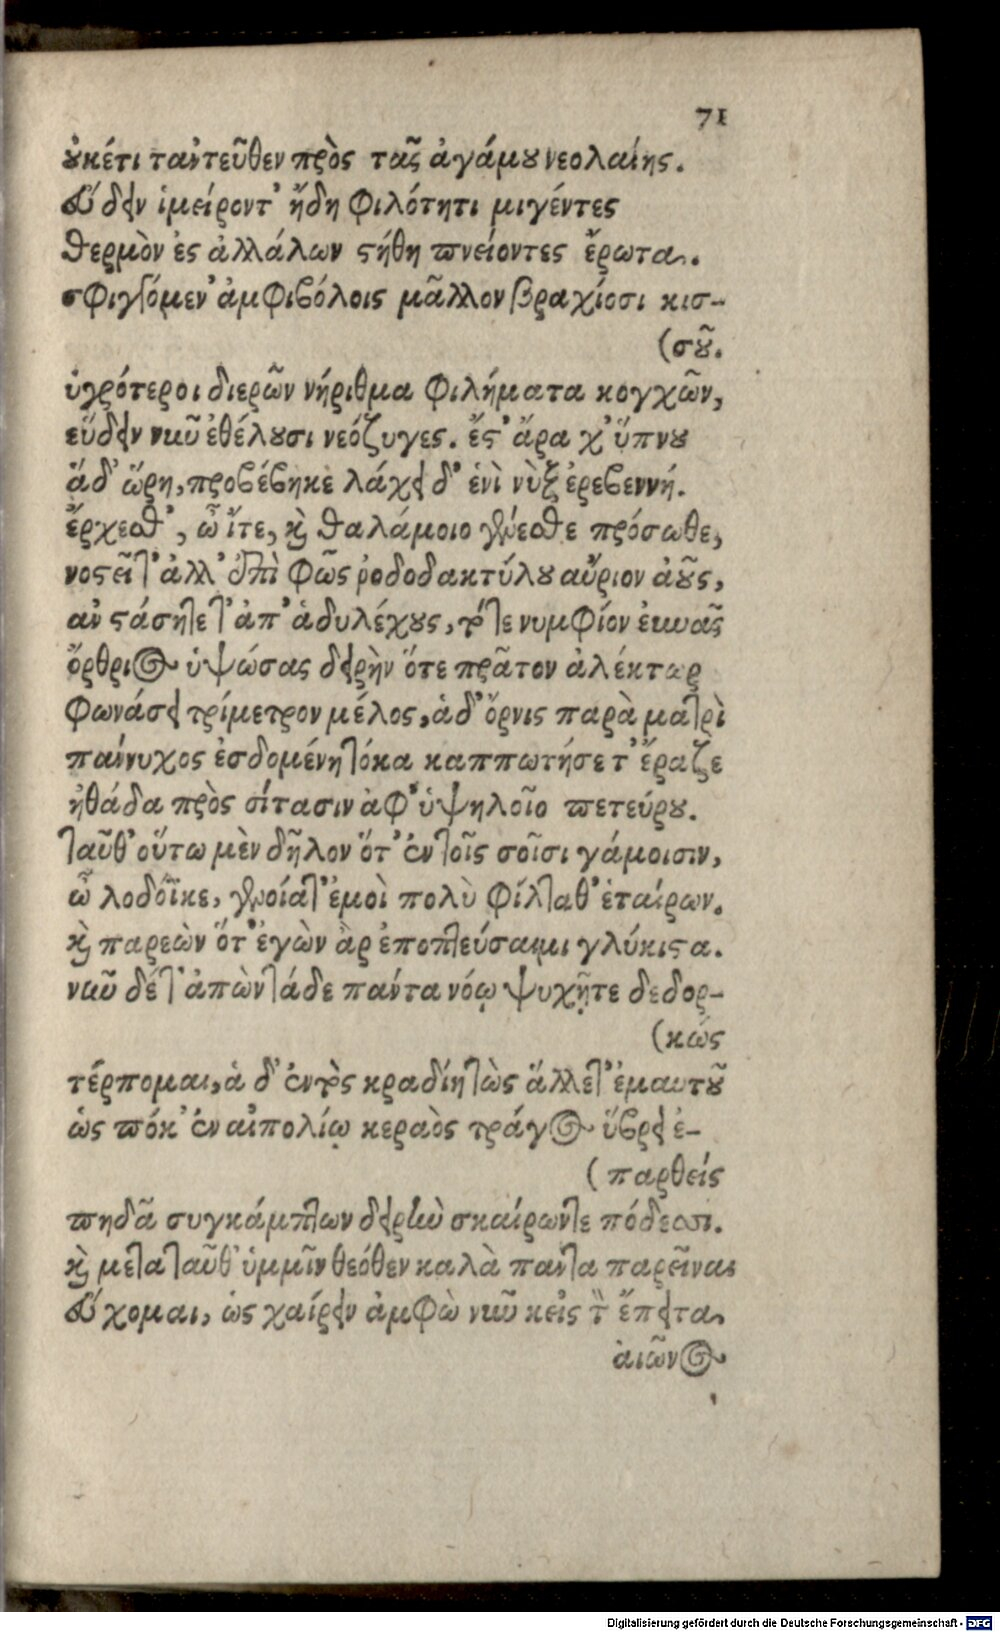 71
οὐκέτι τἀντεῦθεν πρὸς τᾶς ἀγάμου νεολαίης.
εὕδειν ἱμείροντ' ἤδη φιλότητι μιγέντες
θερμὸν ἐς ἀλλάλων στήθη πνείοντες ἔρωτα.
σφιγγόμεν' ἀμφιβόλοις μᾶλλον βραχίοσι κισ-
(σοῦ.
ὑγρότεροι διερῶν νήριθμα φιλήματα κογχῶν,
εὕδειν νῦν ἐθέλουσι νεόζυγες. ἔστ' ἄρα χ' ὕπνου
ἅδ' ὥρη, προβέβηκε λάχει δ' ἑνὶ νὺξ ἐρεβεννή.
ἔρχεσθ', ὦ ἴτε, καὶ θαλάμοιο γίνεσθε πρόσωθε,
νοστεῖτ' ἀλλ' ἐπὶ φῶς ῥοδοδακτύλου αὔριον ἀοῦς,
ἀνστάσητε τ' ἀπ' ἁδυλέχους, τότε νυμφίον εὐνᾶς
ὄρθριος ὑψώσας δειρὴν ὅτε πρᾶτον ἀλέκτωρ
φωνάσει τρίμετρον μέλος, ἁ δ' ὄρνις παρὰ ματρὶ
παίννυχος ἑσδομένη τόκα καππωτήσετ' ἔραζε
ἠθάδα πρὸς σίτασιν ἀφ' ὑψηλοῖο πετεύρου.
ταῦθ' οὕτω μὲν δῆλον ὅτ' ἐν τοῖς σοῖσι γάμοισιν,
ὦ λοδόϊκε, γενοίατ' ἐμοὶ πολὺ φίλταθ' ἑταίρων.
καὶ παρεὼν ὅτ' ἐγὼν ἂρ ἐποπτεύσαιμι γλύκιστα.
νῦν δέ τ' ἀπὼν τάδε πάντα νόῳ ψυχῇτε δεδορ-
(κώς
τέρπομαι, ἁ δ' ἐντὸς κραδίη τὼς ἅλλετ' ἐμαυτοῦ
ὡς πόκ' ἐν αἰπολίῳ κεραὸς τράγος ὕβρει ἐ-
(παρθείς
πηδᾶ συγκάμπτων δειρὴν σκαίρωντε πόδεσσι.
καὶ μετὰ ταῦθ' ὑμμῖν θεόθεν καλὰ πάντα παρεῖναι
εὔχομαι, ὡς χαίρειν ἀμφὼ νῦν κεἰς τὸ ἔπειτα
ἀιῶνος
Digitalisierung gefördert durch die Deutsche Forschungsgemeinschaft - DFG